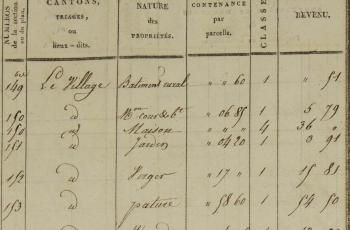 NUMÉROS de la section ou du plan.
CANTONS, TRIAGES, ou lieux-dits.
NATURE des PROPRIÉTÉS.
CONTENANCE par parcelle.
CLASSE
REVENU.
149 Le Village Batiment rural " " 60 1 " 51
150 id Mon cour & bt " 06 85 1 5 79
150 id Maison " " " 4 36 "
151 id Jardin " 04 20 1 3 91
152 id Verger " 17 " 1 15 81
153 id pature " 58 60 1 54 50